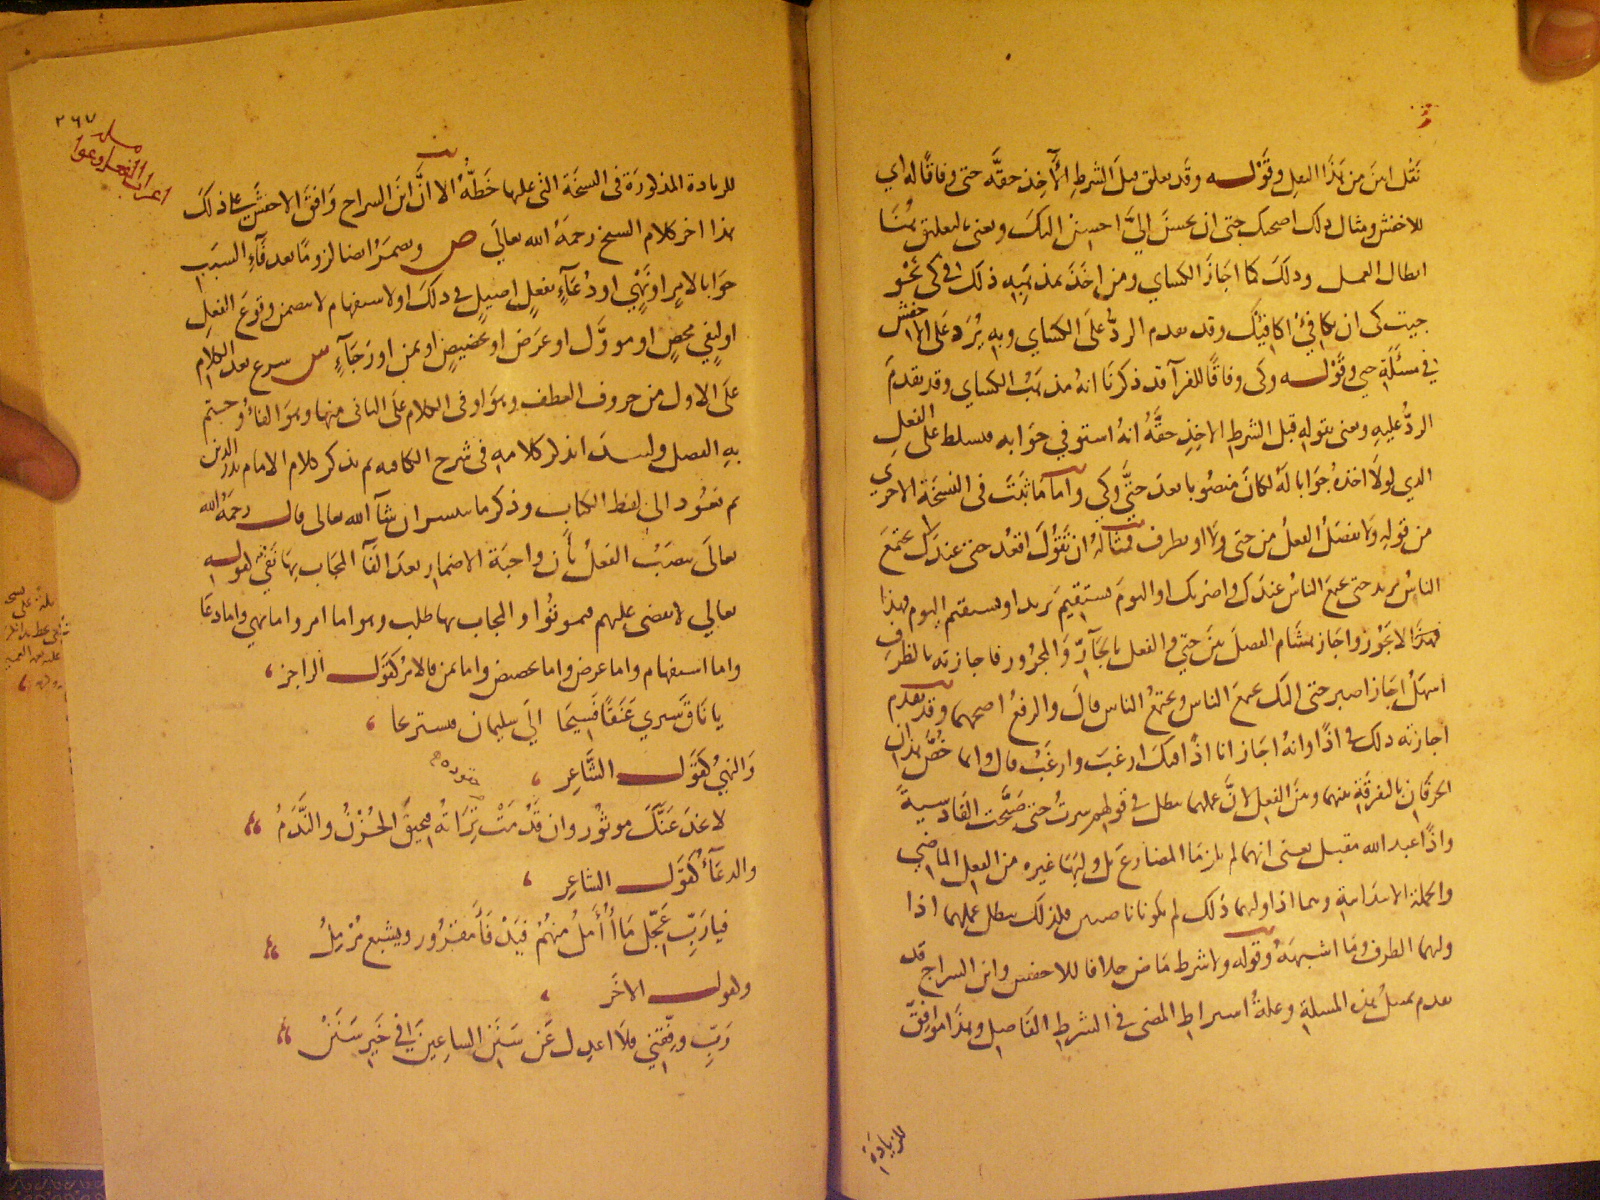 نقل ابن من هذا الفعل وقوله وقد يعلق قبل الشرط الآخذ حقه حتى وفاقا له اي
للاخفش ومثال ذلك اصحبك حتى ان تحسن اليّ احسن اليك ونعني بالتعليق هنا
ابطال العمل وذلك كما اجاز الكساي ومن اخذ بمذهبه ذلك في كي نحو
جيت كي ان تكافئ اكافيك وقد تقدم الرد على الكساي وبه يرد على الاخفش
في مسئلة حتى وقوله وكي وفاقا للفرآ قد ذكرنا انه مذهب الكساي وقد تقدم
الرد عليه ومعنى بقوله قبل الشرط الاخذ حقه انه استوفي جوابه مسلط على الفعل
الذي لولا اخذه جوابا له لكان منصوبا بعد حتى وكي واما ما ثبت في النسخة الاخرى
من قوله ولا يفصل الفعل من حتى ولا او بظرف فمثاله ان تقول اقعد حتى عندك يجتمع
الناس يريد حتى يجتمع الناس عندك واضربك او اليوم تستقيم يريد او تستقيم اليوم فهذا
فهذا لا يجوز واجاز هشام الفصل بين حتي والفعل بالجآر والمجرور فاجازته بالظرف
اسهل اجاز اصبر حتى اليك يجتمع الناس ويجتمع الناس قال والرفع اصحهما وقد تقدم
اجازته ذلك في اذا وانه اجاز انا اذا فيك ارغب وارغب قال وانما خص هذان
الحرفان بالتفرقة بينهما وبين الفعل لان عملهما يبطل في قولهم سرت حتى صبحت القادسية
واذا عبد الله مقبل يعني انهما لم يلزما المضارع بل وليهما غيره من الفعل الماضي
والجملة الابتدايية وهما اذا وليهما ذلك لم يكونا ناصبين فلذلك يبطل عملهما اذا
وليهما الظرف وما اشبهه وقوله ولا شرط ماض خلافا للاخفش وابن السراج قد
تقدم تمثيل هذه المسئلة وعلة اشتراط المضى في الشرط الفاصل وهذا موافق
للزيادة
٢٦٧
اعراب الفعل وعوا
للزيادة المذكورة في النسخة التي عليها خطه الا ان ابن السراح وافق الاخفش على ذلك
هذا اخر كلام الشيخ رحمه الله تعالى ص وتضمر ايضا لزوما بعد فآء السبب
جوابا لامر او نهي او دعآء بفعل اصيل في ذلك او لاستفهام لا يتضمن وقوع الفعل
او لنفي محض او موول او عرض او تحضيض او تمن او رجآء س شرع بعد الكلام
على الاول من حروف العطف وهو او في الكلام على الثاني منها وهو الفاء وختم
به الفصل ولنبد اذكر كلامه في شرح الكافيه ثم نذكر كلام الامام بدر الدين
ثم نعود الى لفظ الكتاب وذكر ما يتيسر ان شآء الله تعالى قال رحمه الله
تعالى ينصب الفعل بأن واجبة الاضمار بعد الفآ المجاب بها نفى كقوله
تعالي لا يقضى عليهم فيموتوا او المجاب بها طلب وهو اما امر واما نهي واما دعا
واما استفهام واما عرض واما تحضيض واما تمن فالامر كقول الراجز
يا ناق سيري عنقا فسيحا الي سليمان فنستريحا
والنهي كقول الشاعر
لا يخدعنك موثور وان قدمت تراته فيحيق الحزن والندم
والدعآء كقول الشاعر
فيا رب عجل ما أأمل منهم فيدفأ مقرور ويشبع مرمل
وكقول الاخر
رب وفقني فلا اعدل عن سنن الساعين في خير سنن